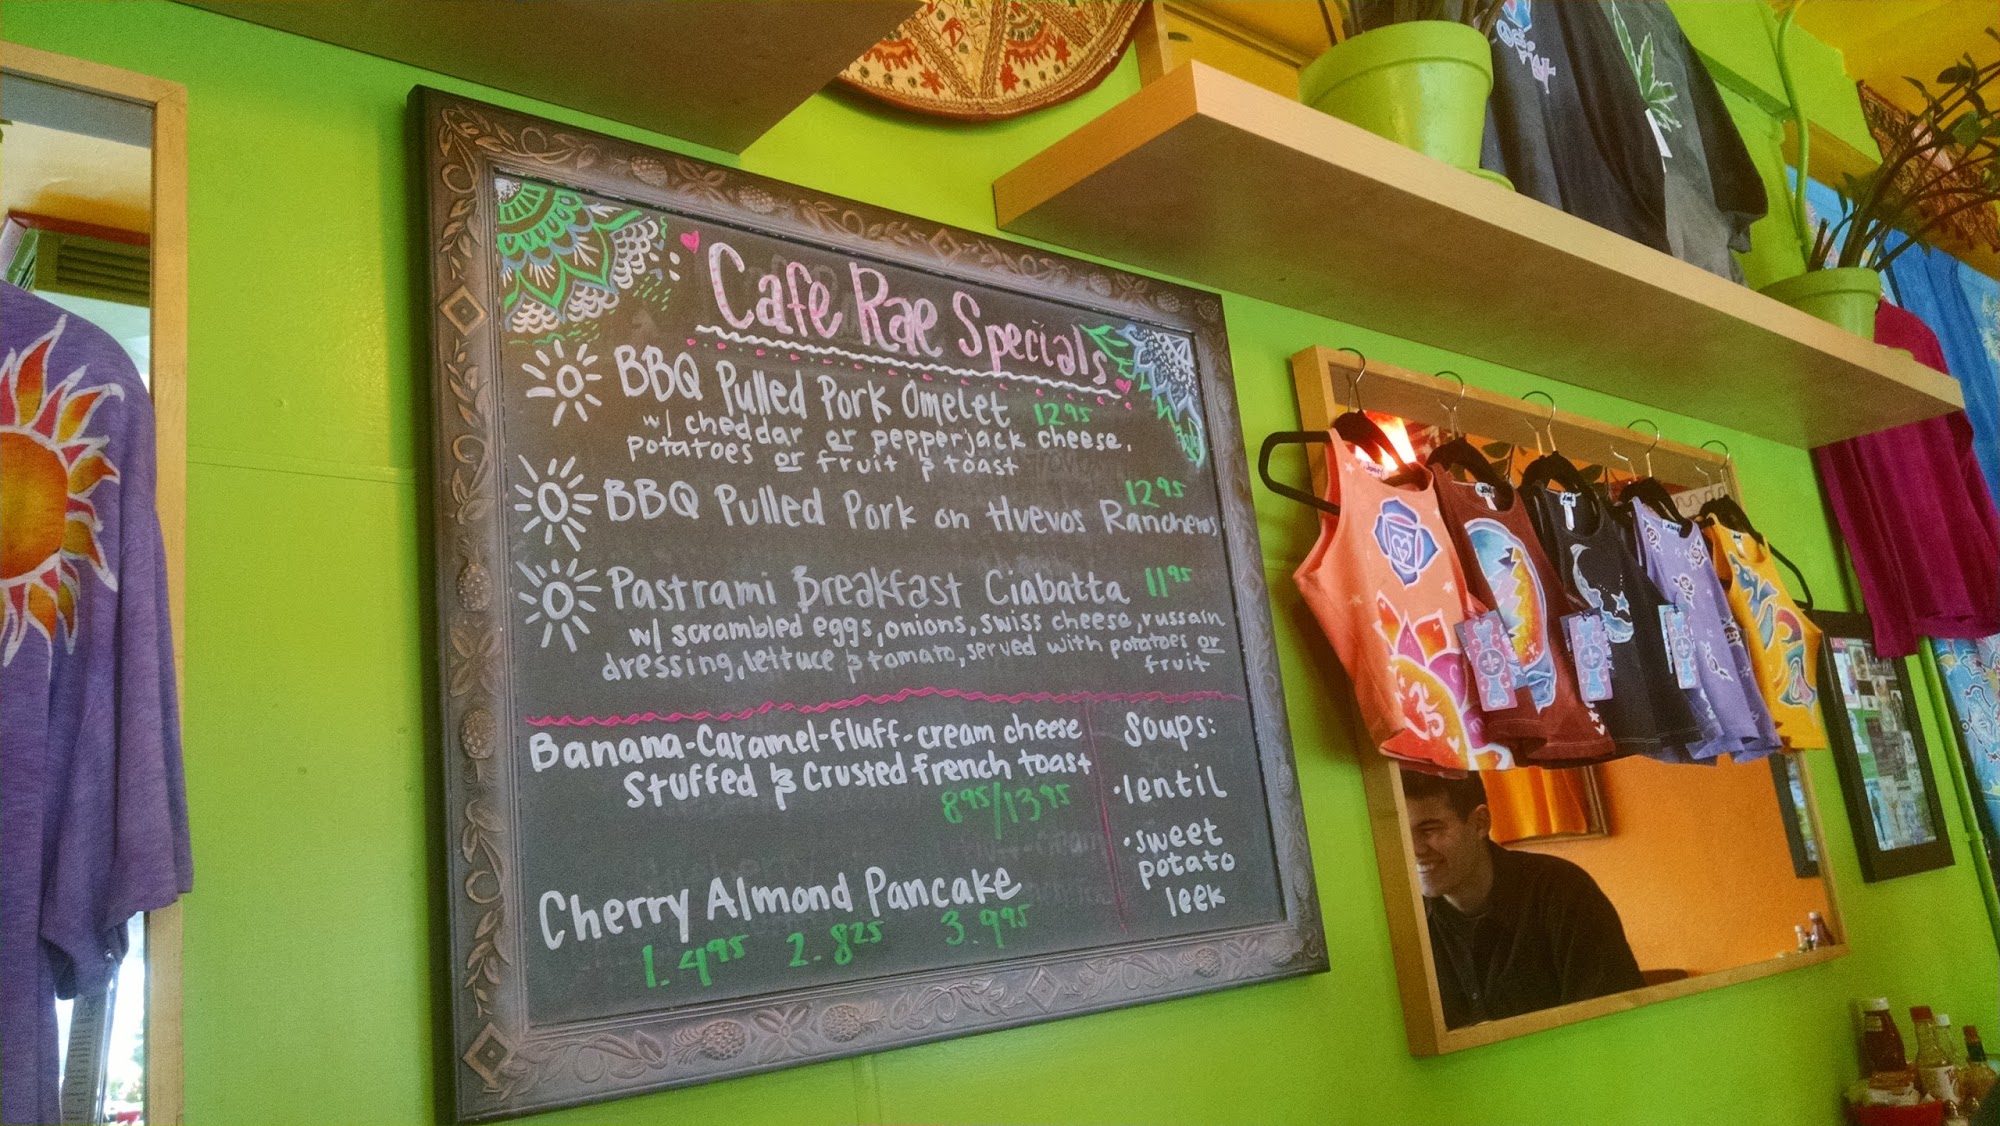 Cafe Rae Specials
BBQ Pulled Pork Omelet 12.95
w/ cheddar or pepperjack cheese,
potatoes or fruit & toast
12.95
BBQ Pulled Pork on Huevos Rancheros
Pastrami Breakfast Ciabatta 11.95
w/ scrambled eggs, onions, swiss cheese, russain
dressing, lettuce & tomato, served with potatoes or
fruit
Banana-Caramel-fluff-cream cheese
Stuffed & Crusted french toast
8.95/13.95
Cherry Almond Pancake
1. 4.95 2. 8.25 3. 9.95
Soups:
• lentil
• sweet
potato
leek